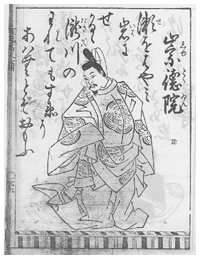 崇徳院
瀬をはやみ
岩に
せ
瀧川の
われてもすゑに
あはむとぞおもふ